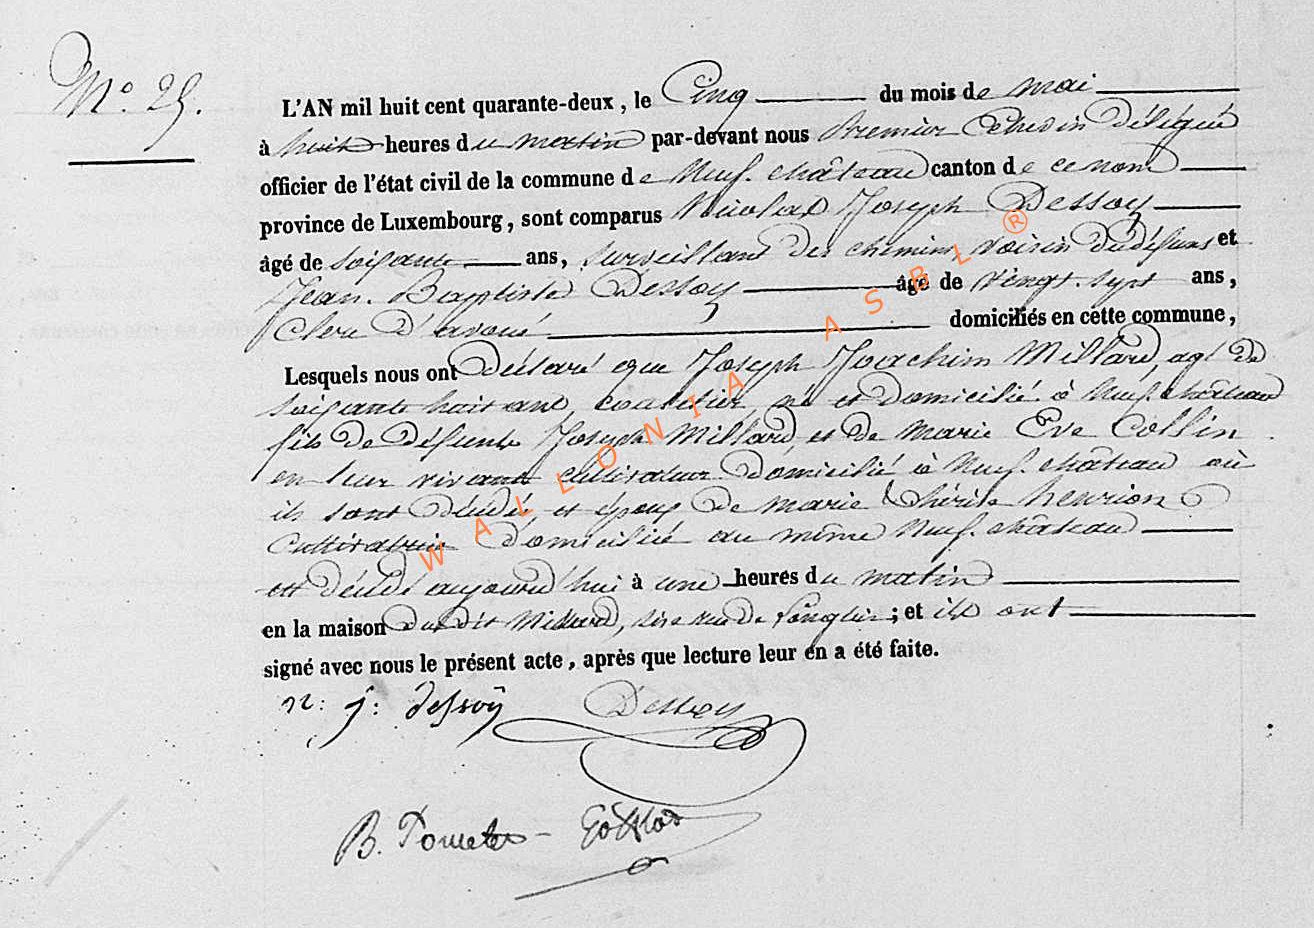 N.° 25.
L'AN mil huit cent quarante-deux, le Cinq du mois de mai
à huit heures du matin par-devant nous Premier Echevin Délégué
officier de l'état civil de la commune de Neuf-château canton de ce nom
province de Luxembourg, sont comparus Nicolas Joseph Dessoy
âgé de soixante ans, surveillant des chemins voisin du défunt et
Jean-Baptiste Dessoy âgé de vingt-sept ans,
Clerc d'avoué domiciliés en cette commune,
Lesquels nous ont Déclaré que Joseph Joachim Millard, agé de
soixante huit ans, né et domicilié à Neufchâteau
fils de défunts Joseph Millard et de Marie Eve Collin
en leur vivant cultivateur domicilié à Neuf-château où
ils sont décédé et époux de Marie Thérèse henrion
Cultivatrice domicilié au même Neuf-château
est décédé aujourd'hui à une heures du matin
en la maison du dit Millard, sise rue de ; et ils ont
signé avec nous le présent acte, après que lecture leur en a été faite.
n: j: dessoÿ Dessoy
B.
WALLONIA ASBL ®